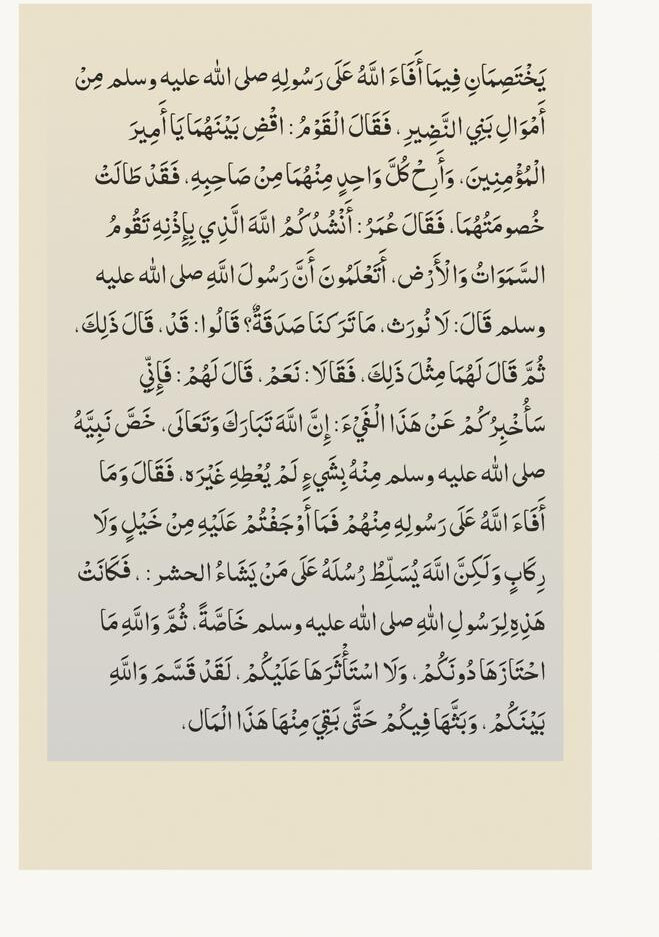 يَخْتَصِمَانِ فِيمَا أَفَاءَ اللَّهُ عَلَى رَسُولِهِ صلى الله عليه وسلم مِنْ
أَمْوَالِ بَنِي النَّضِيرِ، فَقَالَ الْقَوْمُ: اقْضِ بَيْنَهُمَا يَا أَمِيرَ
الْمُؤْمِنِينَ، وَأَرِحْ كُلَّ وَاحِدٍ مِنْهُمَا مِنْ صَاحِبِهِ، فَقَدْ طَالَتْ
خُصومَتُهُمَا، فَقَالَ عُمَرُ: أَنْشُدُكُمُ اللَّهَ الَّذِي بِإِذْنِهِ تَقُومُ
السَّمَوَاتُ وَالْأَرْضِ، أَتَعْلَمُونَ أَنَّ رَسُولَ اللَّهِ صلى الله عليه
وسلم قَالَ: لَا نُورَث، مَا تَرَكنَا صَدَقَةٌ؟ قَالُوا: قَدْ، قَالَ ذَلِكَ،
ثُمَّ قَالَ لَهُمَا مِثْلَ ذَلِكَ، فَقَالَا: نَعَمْ، قَالَ لَهُمْ: فَإِنِّي
سَأُخْبِرُكُمْ عَنْ هَذَا الْفَيْءَ: إِنَّ اللَّهَ تَبَارَكَ وَتَعَالَى، خَصَّ نَبِيَّهُ
صلى الله عليه وسلم مِنْهُ بِشَيءٍ لَمْ يُعْطِهِ غَيْرَه، فَقَالَ وَمَا
أَفَاءَ اللَّهُ عَلَى رَسُولِهِ مِنْهُمْ فَمَا أَوْجَفْتُمْ عَلَيْهِ مِنْ خَيْلٍ وَلَا
رِكَابٍ وَلَكِنَّ اللَّهَ يُسَلِّطُ رُسُلَهُ عَلَى مَنْ يَشَاءُ الحشر: ، فَكَانَتْ
هَذِهِ لِرَسُولِ اللهِ صلى الله عليه وسلم خَاصَّةً، ثُمَّ وَاللَّهِ مَا
احْتَازَهَا دُونَكُمْ، وَلَا اسْتَأْثَرَهَا عَلَيْكُمْ، لَقَدْ قَسَّمَ وَاللَّهِ
بَيْنَكُمْ، وَبَثَّهَا فِيكُمْ حَتَّى بَقِيَ مِنْهَا هَذَا الْمَال،